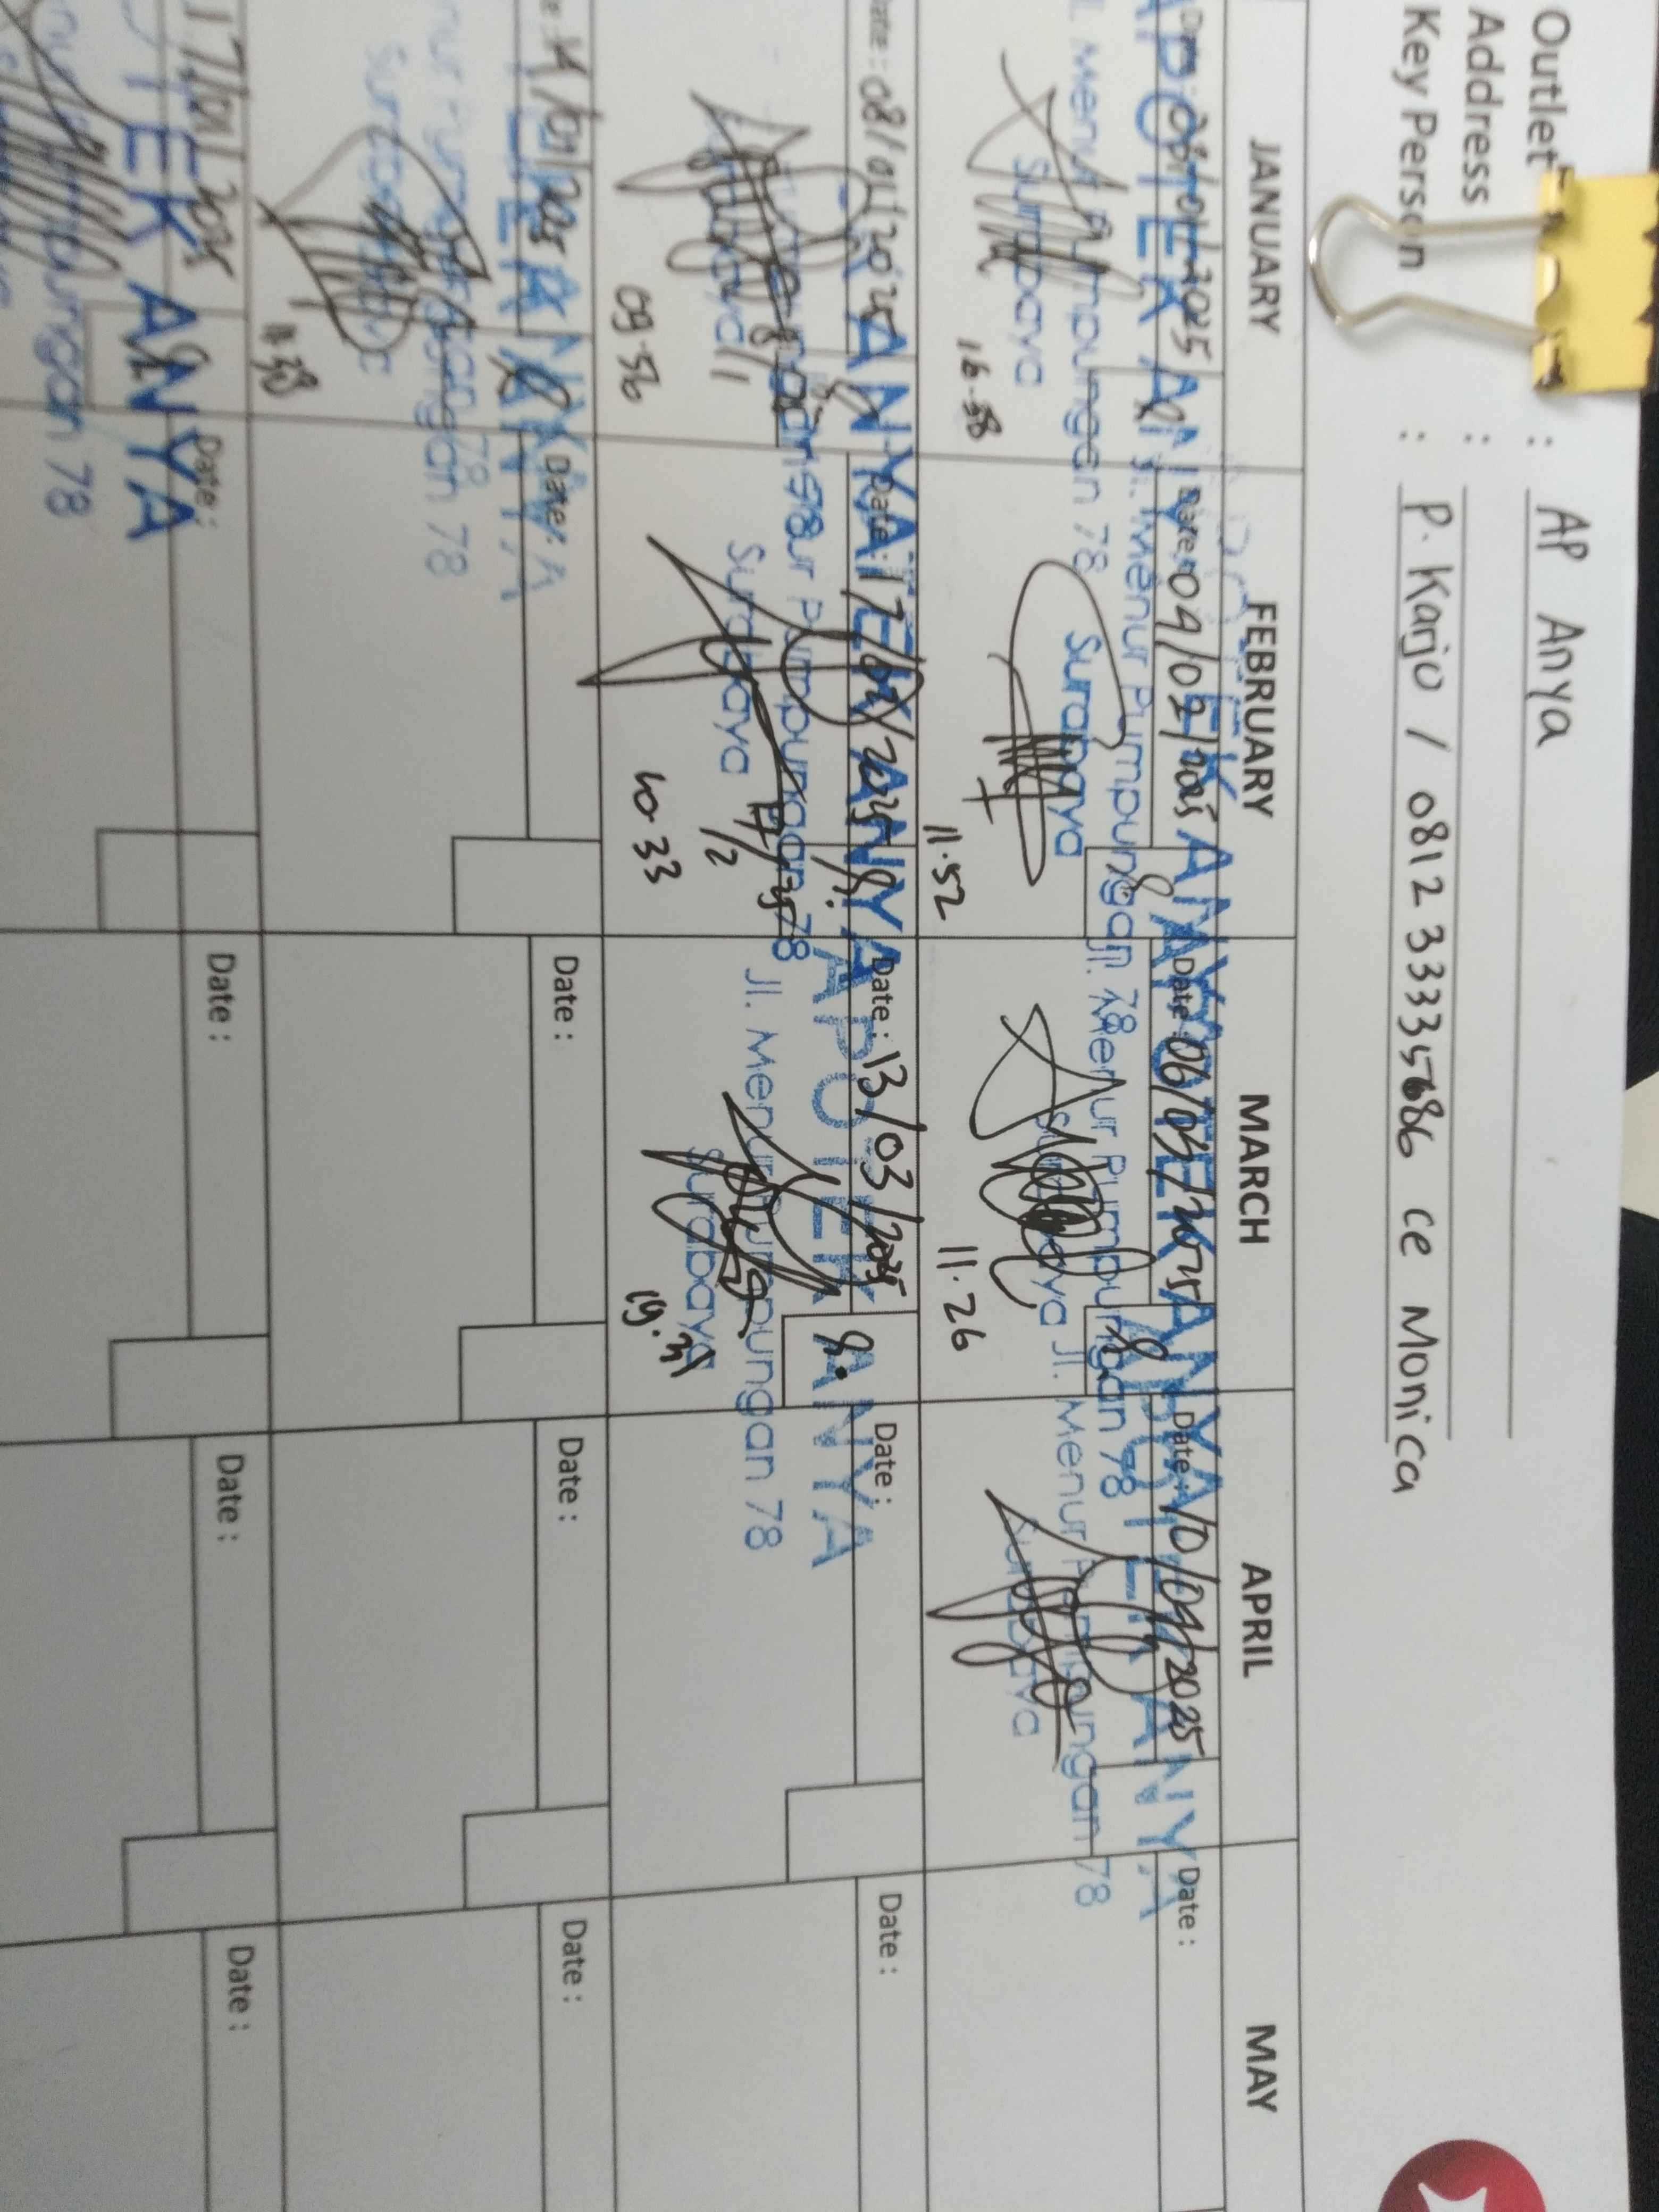 Outlet : AP Anya
Address :
Key Person : P. Karjo / 0812 33335686 ce Monica
JANUARY FEBRUARY MARCH APRIL MAY
Date: 03/01/2025 Date: 04/02/2025 Date: 06/03/2025 Date: 10/04/2025 Date :
APOTEK ANYA
Jl. Menur Pumpungan 78
Surabaya
16.38
APOTEK ANYA
Jl. Menur Pumpungan 78
Surabaya
11.52
APOTEK ANYA
Jl. Menur Pumpungan 78
Surabaya
11.26
APOTEK ANYA
Jl. Menur Pumpungan 78
Surabaya
Date : 08/01/2025 Date: 17/02/2025 Date : 13/03/2025 Date : Date :
ANYA
Surabaya
09.56
TEK ANYA
Menur Pumpungan 78
Surabaya
10.33
APOTEK ANYA
Jl. Menur Pumpungan 78
Surabaya
19.31
Date: Date : Date : Date :
EK ANYA
nur Pumpungan 78
Surabaya
11.38
17/01/2025 Date: Date : Date : Date :
TEK ANYA
pungan 78